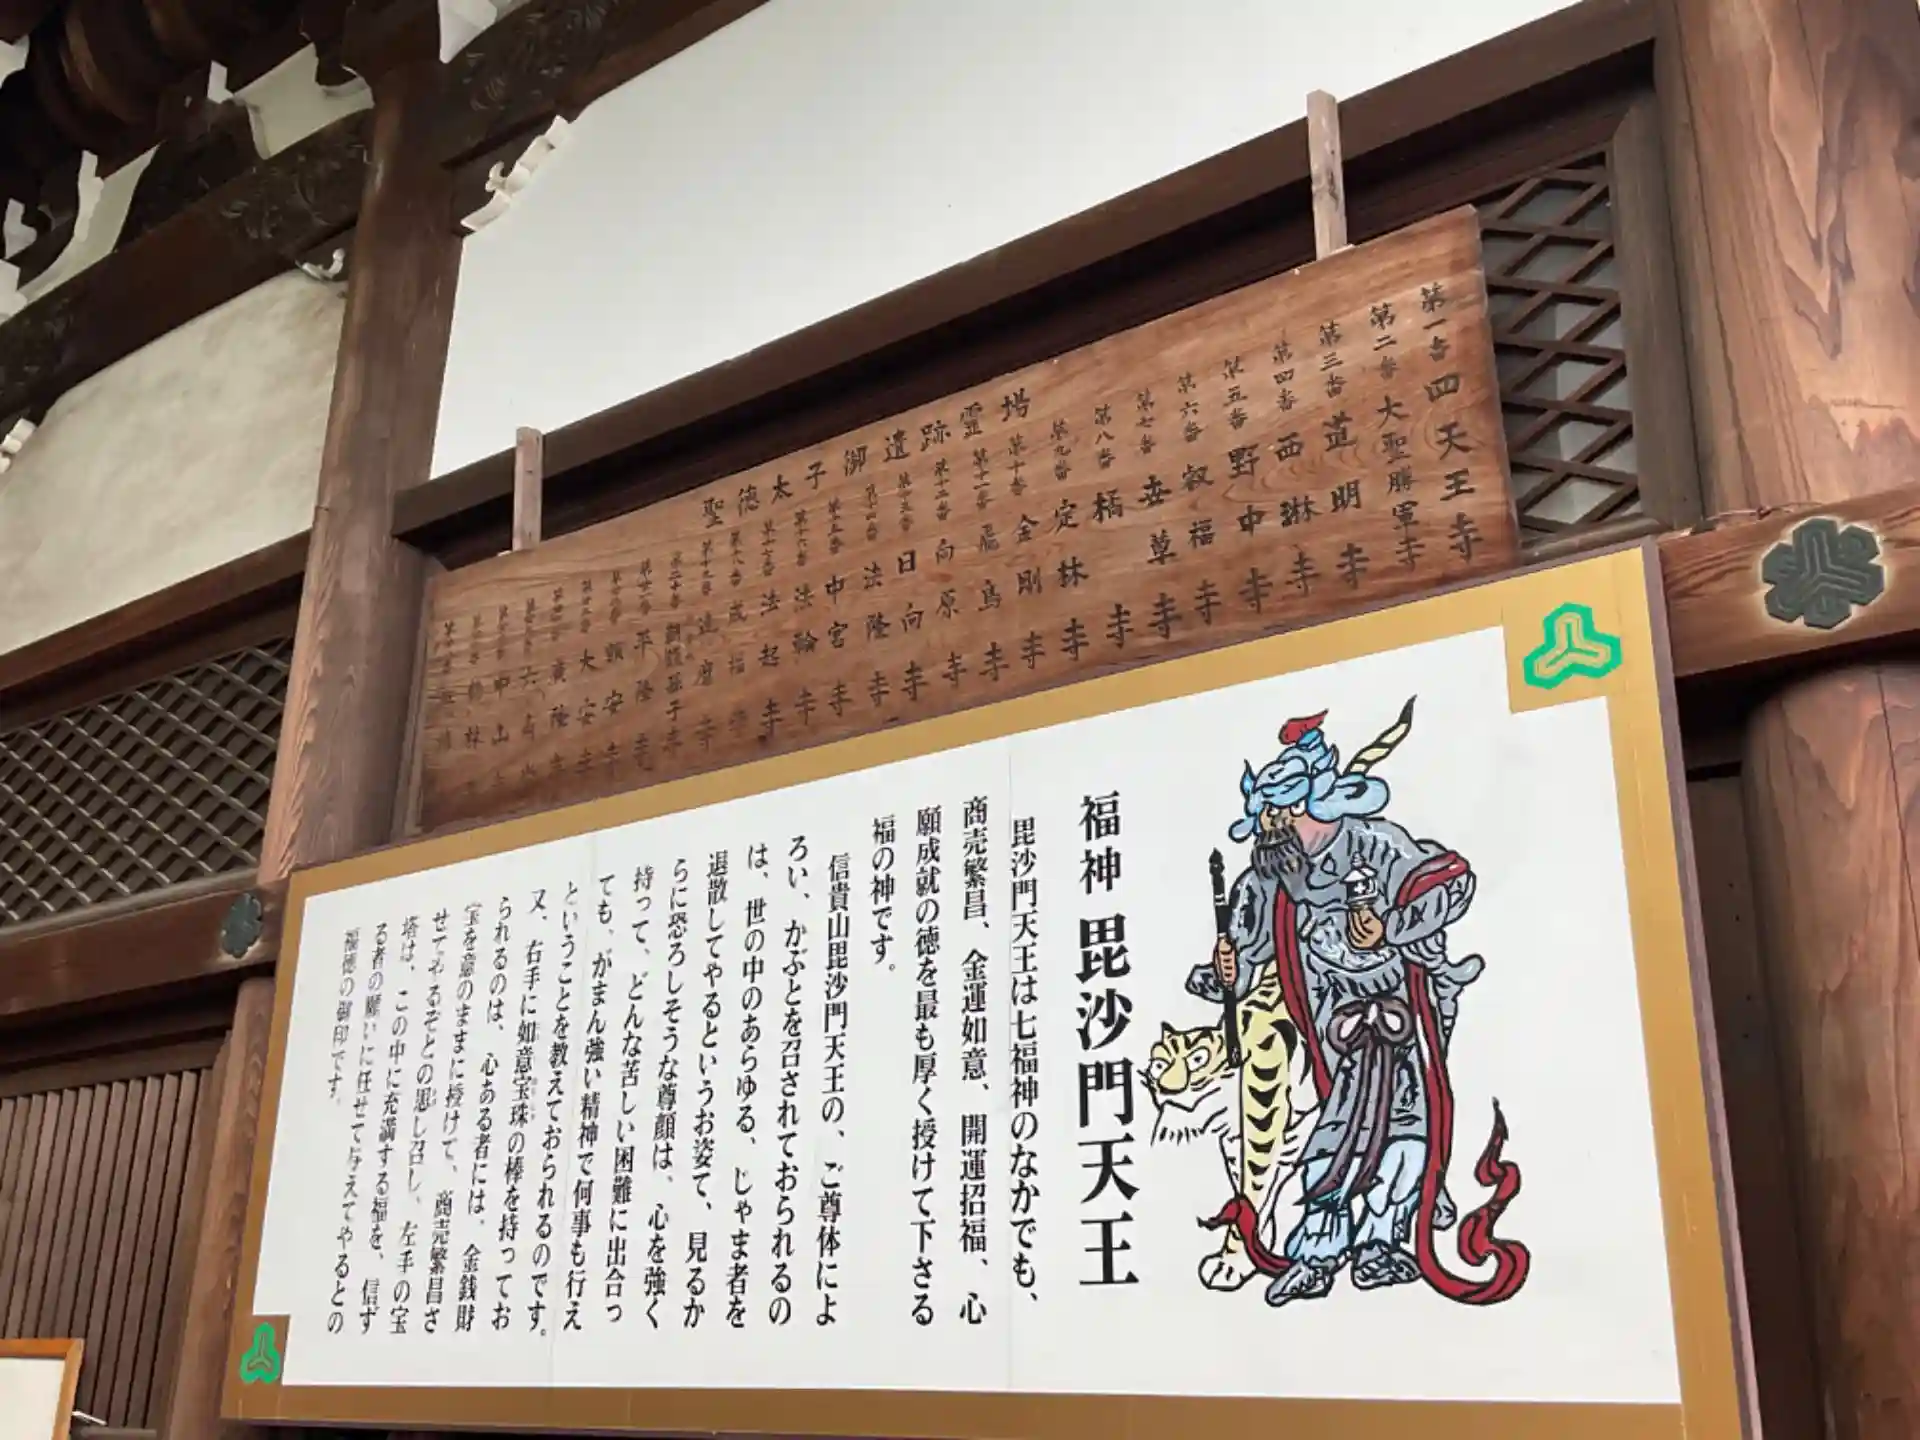 聖徳太子御遺跡霊場
第一番 四天王寺
第二番 大聖勝軍寺
第三番 道明寺
第四番 西琳寺
第五番 野中寺
第六番 叡福寺
第七番 世尊寺
第八番 橘寺
第九番 定林寺
第十番 金剛寺
第十一番 飛鳥寺
第十二番 向原寺
第十三番 日向寺
第十四番 法隆寺
第十五番 中宮寺
第十六番 法輪寺
第十七番 法起寺
第十八番 成福寺
第十九番 達磨寺
第二十番 朝護孫子寺
平隆寺
頼安寺
大安寺
廣隆寺
六角
中山
鶴林
福神 毘沙門天王
毘沙門天王は七福神のなかでも、
商売繁昌、金運如意、開運招福、心
願成就の徳を最も厚く授けて下さる
福の神です。
信貴山毘沙門天王の、ご尊体によ
ろい、かぶとを召されておられるの
は、世の中のあらゆる、じゃま者を
退散してやるというお姿て、見るか
らに恐ろしそうな尊顔は、心を強く
持って、どんな苦しい困難に出合っ
ても、がまん強い精神で何事も行え
ということを教えておられるのです。
又、右手に如意宝珠の棒を持ってお
られるのは、心ある者には、金銭財
宝を意のままに授けて、商売繁昌さ
せてやるぞとの思し召し、左手の宝
塔は、この中に充満する福を、信ず
る者の願いに任せて与えてやるとの
福徳の御印です。